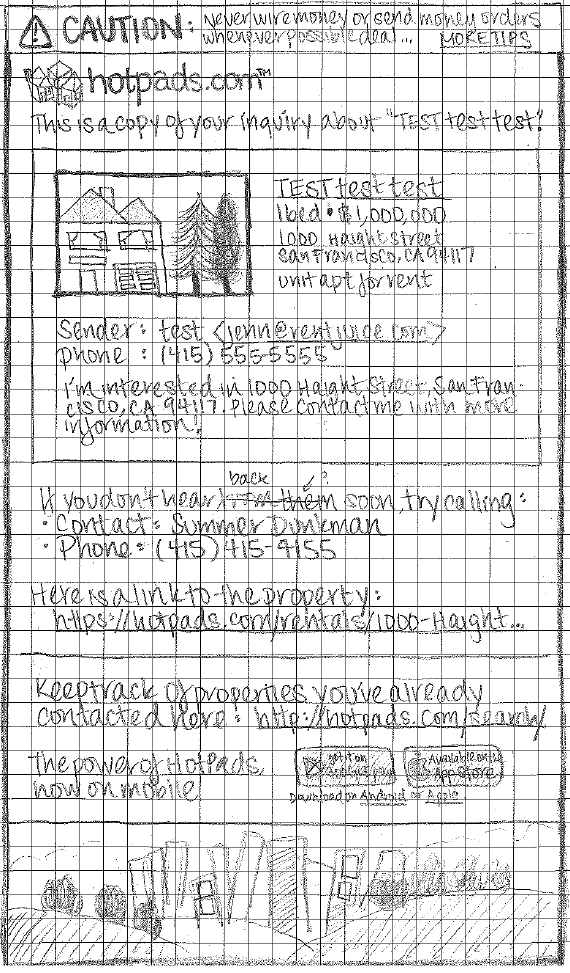 CAUTION: Never wire money or send money orders
whenever possible deal... MORE TIPS
hotpads.com™
This is a copy of your inquiry about "TEST test test."
TEST test test
1 bed • $1,000,000
1000 Haight street
San Francisco, CA 94117
unit apt for rent
Sender: test <jenn@rentjuice.com>
phone : (415) 555-5555
I'm interested in 1000 Haight Street, San Fran-
cisco, CA 94117. Please contact me with more
information!
back ?
If you don't hear from them soon, try calling:
• Contact: Summer Dunkman
• Phone: (415) 415-4155
Here is a link to the property:
https://hotpads.com/rentals/1000-Haight...
Keep track of properties you've already
contacted here: http://hotpads.com/search/
The power of HotPads,
now on mobile
get it on
Available on the
App Store
Download on Android or Apple